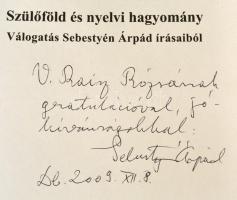 Szülőföld és nyelvi hagyomány
Válogatás Sebestyén Árpád írásaiból
V. Raisz Rózsának
gratulációval, jó-
kívánságokkal:
Sebestyén Árpád
Db. 2009. XII. 8.